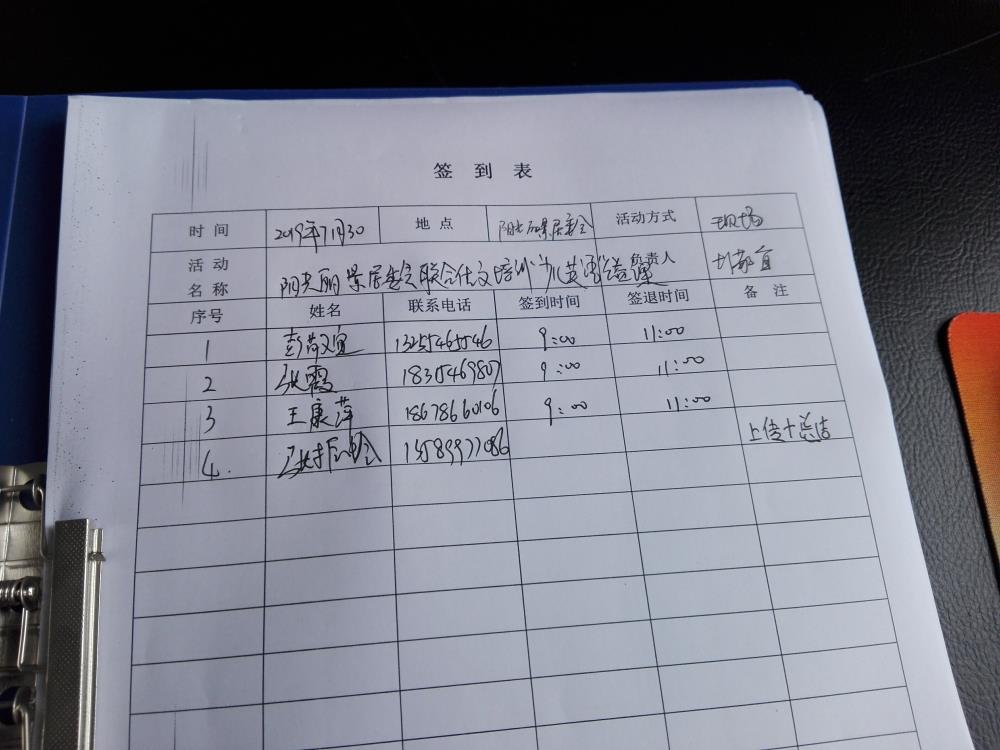 签 到 表
时 间 2019年11月30 地 点 阳光丽景居委会 活动方式 现场
活 动 名 称 阳光丽景居委会联合仕文培训少儿英语公益课 负责人
序号 姓名 联系电话 签到时间 签退时间 备 注
1 彭敬宜 13255465546 9:00 11:00
2 张霞 1835469807 9:00 11:00
3 王康萍 18678660106 9:00 11:00
4. 15589977086 上传+总结